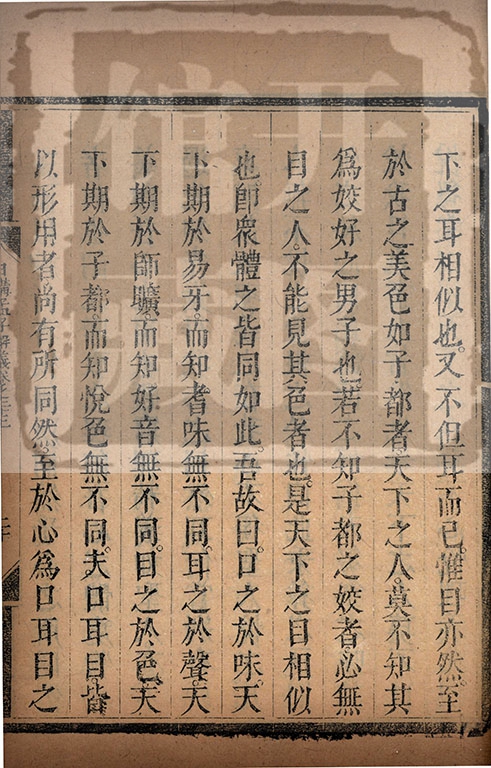 下之耳相似也。又不但耳而已。惟目亦然。至
於古之美色如子都者。天下之人。莫不知其
為姣好之男子也。若不知子都之姣者。必無
目之人。不能見其色者也。是天下之目相似
也。即衆體之皆同如此。吾故曰。口之於味。天
下期於易牙。而知耆味無不同。耳之於聲。天
下期於師曠。而知好音無不同。目之於色。天
下期於子都。而知悅色無不同。夫口耳目皆
以形用者。尚有所同然。至於心為口耳目之
日講孟子解義卷